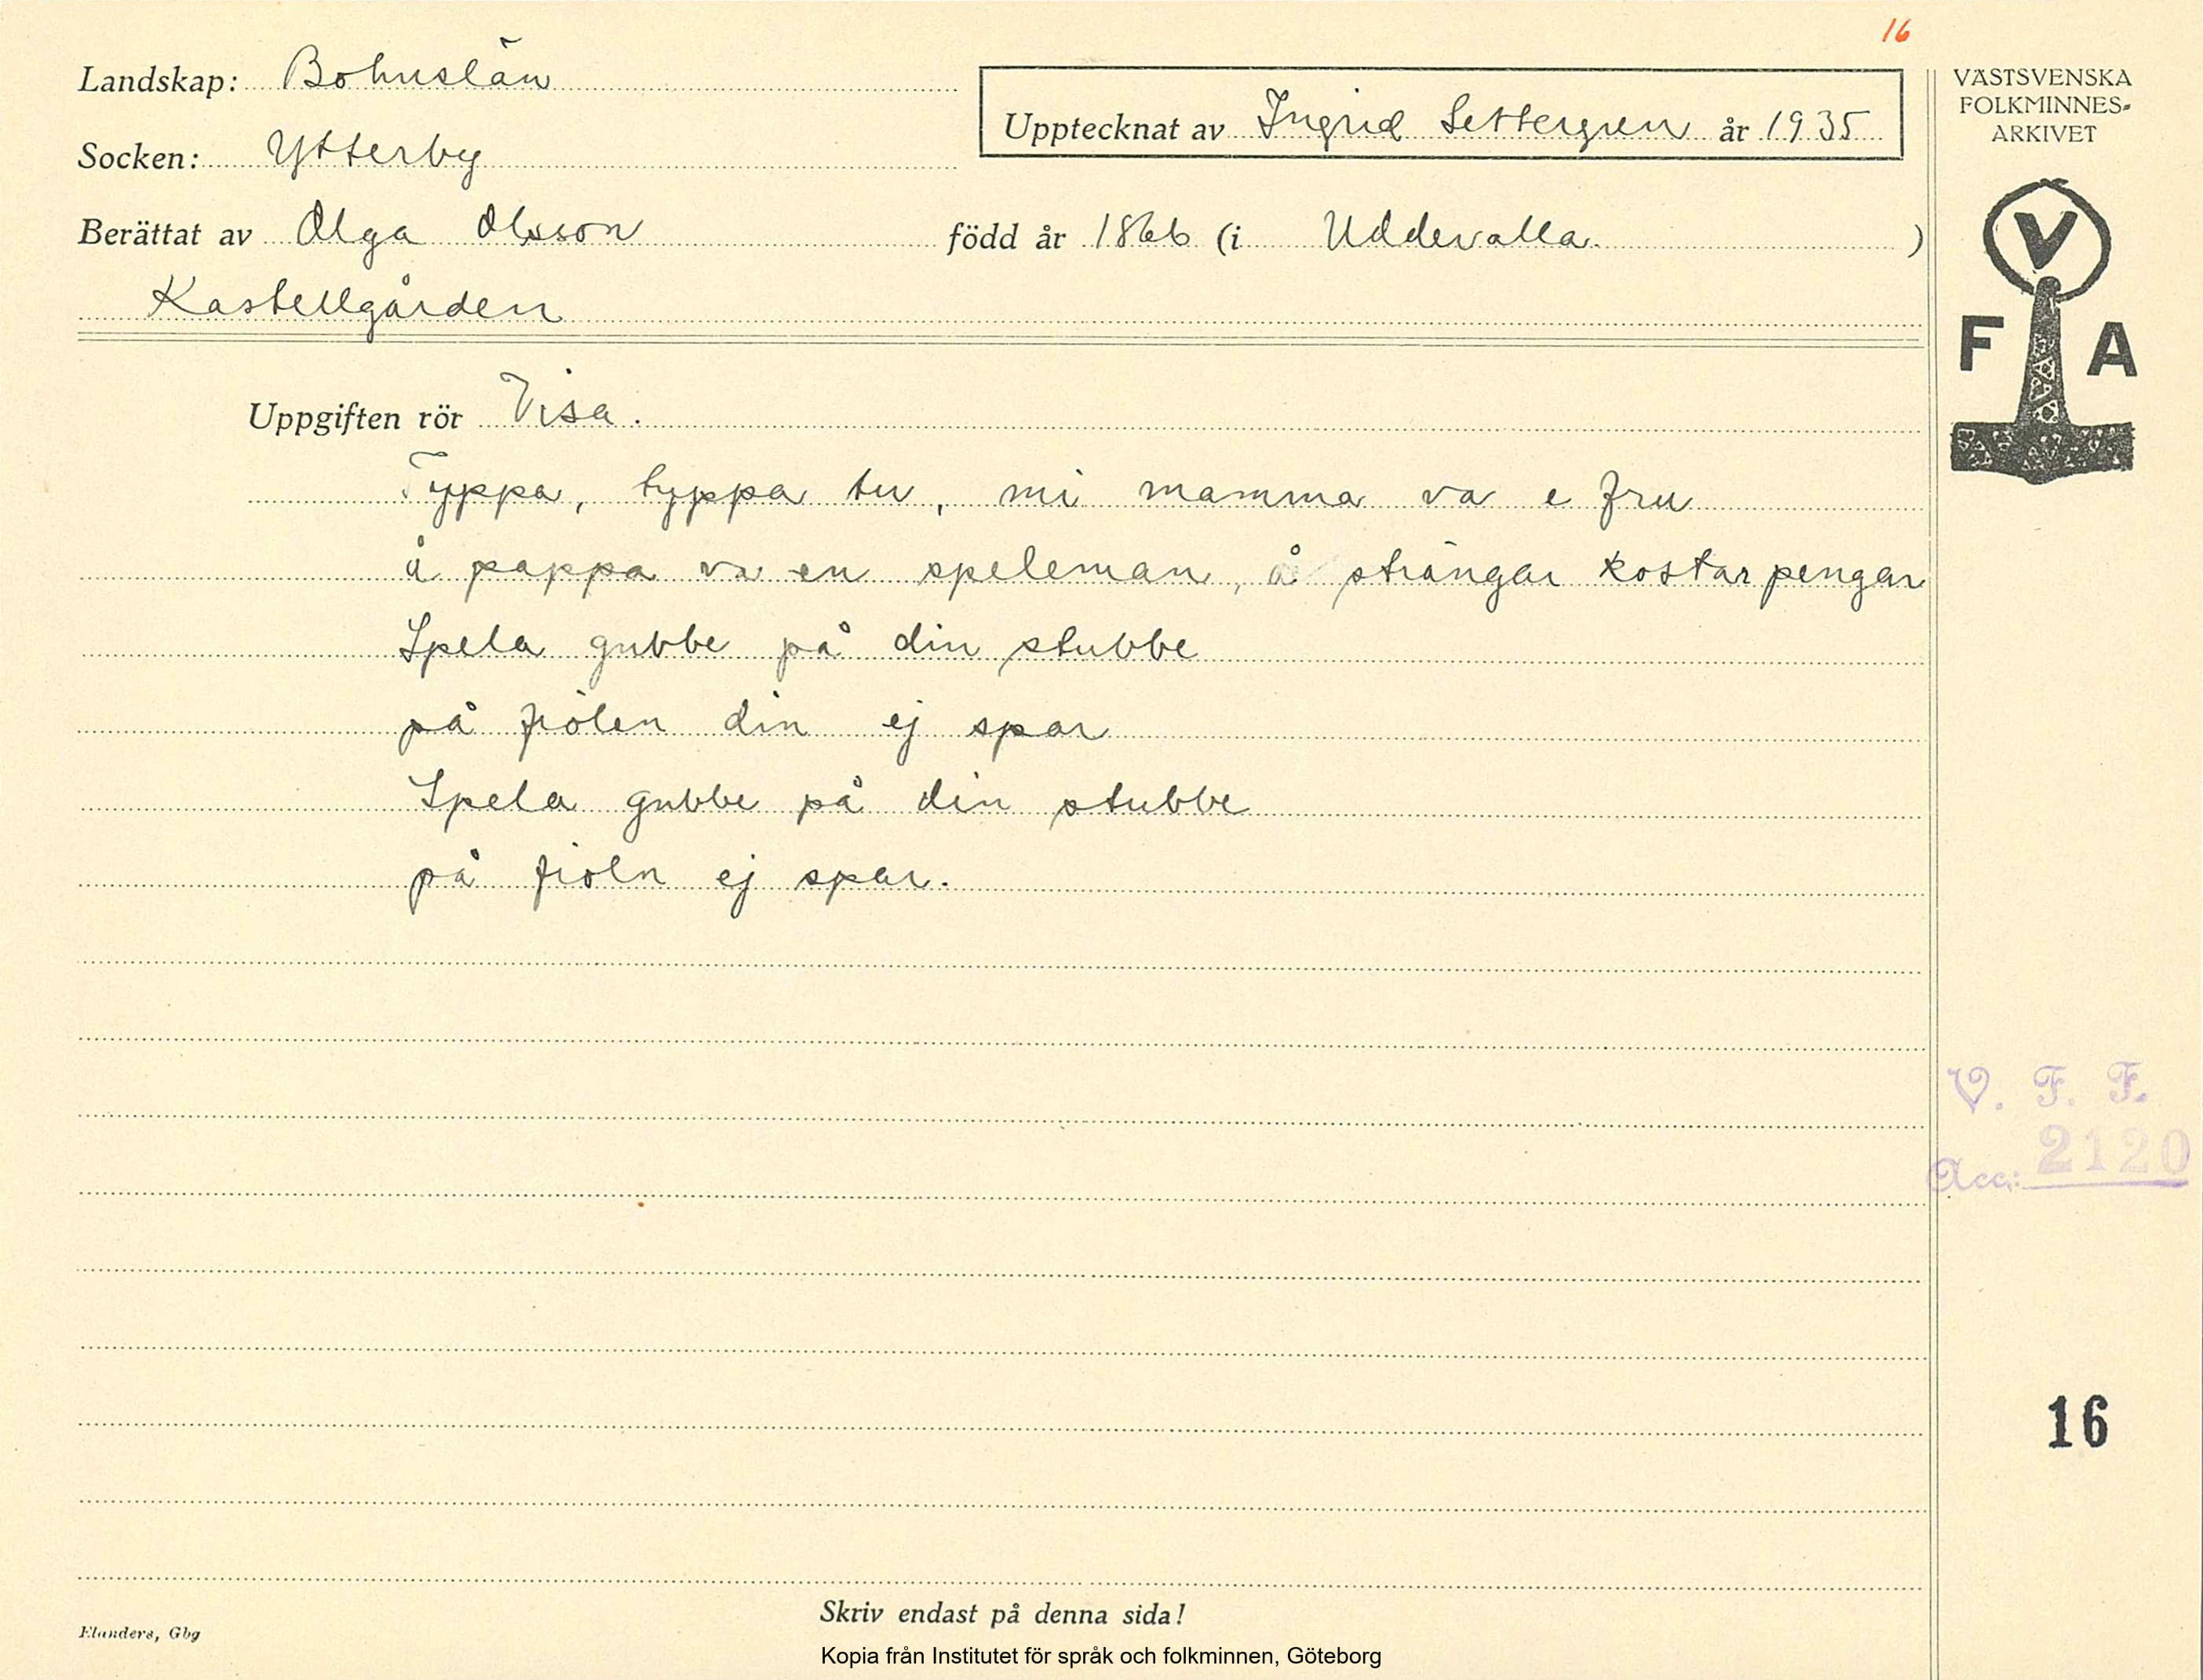 16
Landskap: Bohuslän
Upptecknat av Ingrid Settergren år 1935
VÄSTSVENSKA
FOLKMINNES-
ARKIVET
Socken: Ytterby
Berättat av Olga Olsson född år 1866 (i Uddevalla. )
Kastellgården
V
F A
Uppgiften rör Visa.
Typpa, typpa tu, mi mamma va e fru
å pappa va en speleman, å strängar kostar pengar
Spela gubbe på din stubbe
på fiolen din ej spar
Spela gubbe på din stubbe
på fioln ej spar.
V. F. F.
Acc: 2120
16
Skriv endast på denna sida!
Elanders, Gbg
Kopia från Institutet för språk och folkminnen, Göteborg